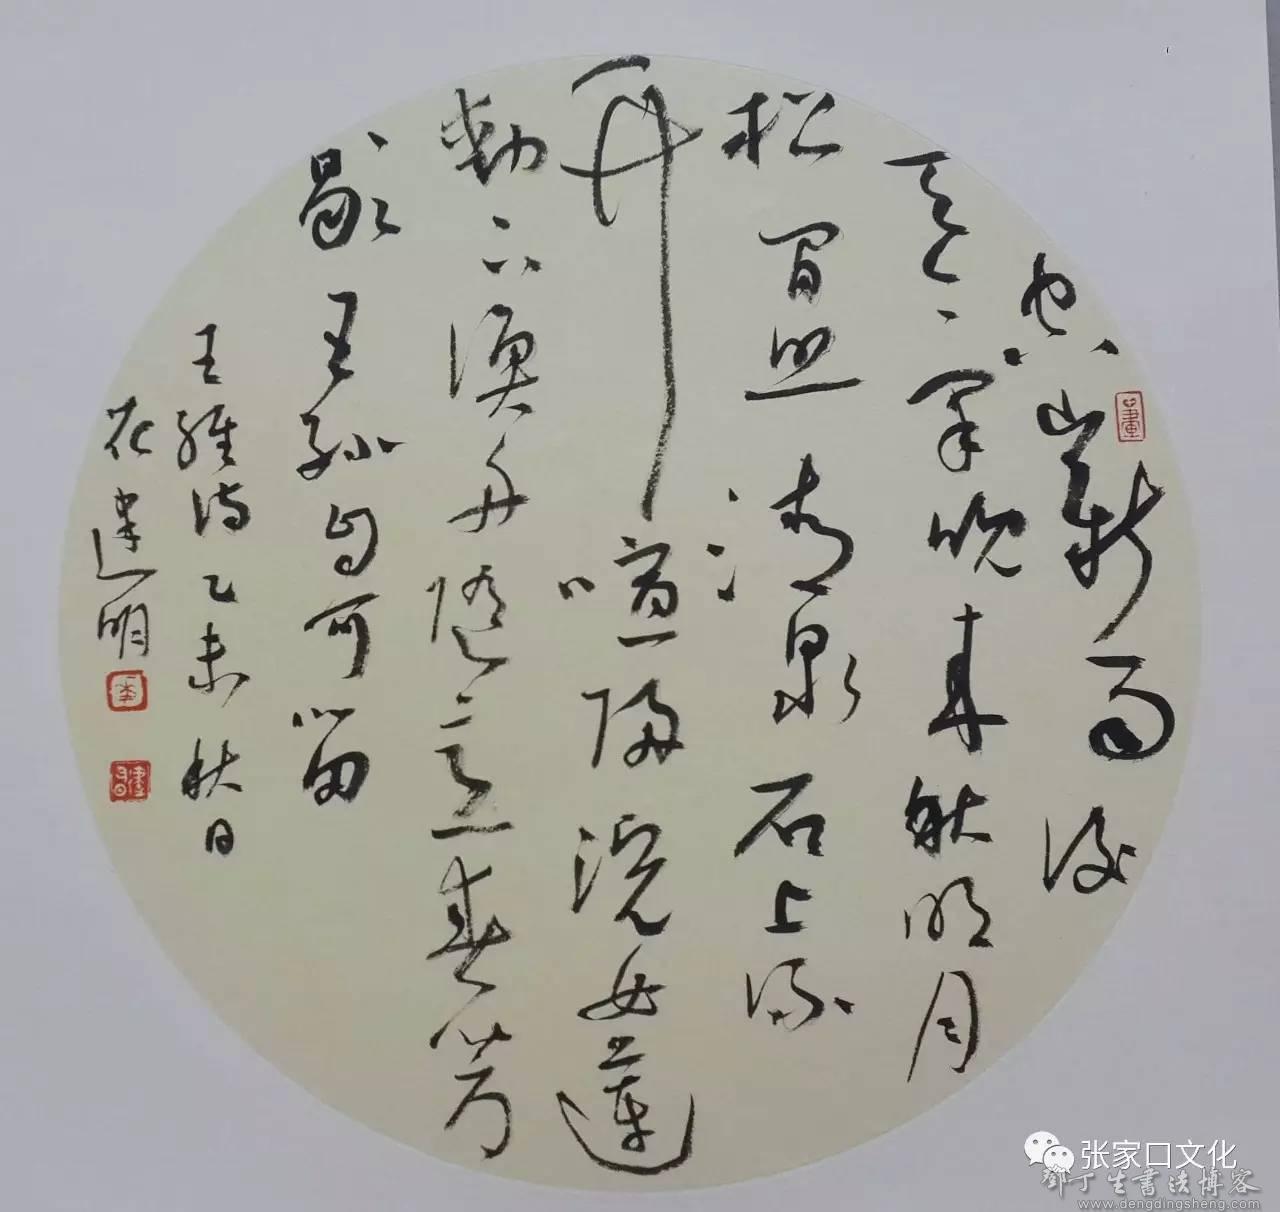 空山新雨後
天氣晚来秋明月
松間照清泉石上流
竹喧歸浣女蓮
動下漁舟隨意春芳
歇王孫自可留
王維詩乙未秋日
花建明
张家口文化
鄧丁生書法博客
www.dengdingsheng.com